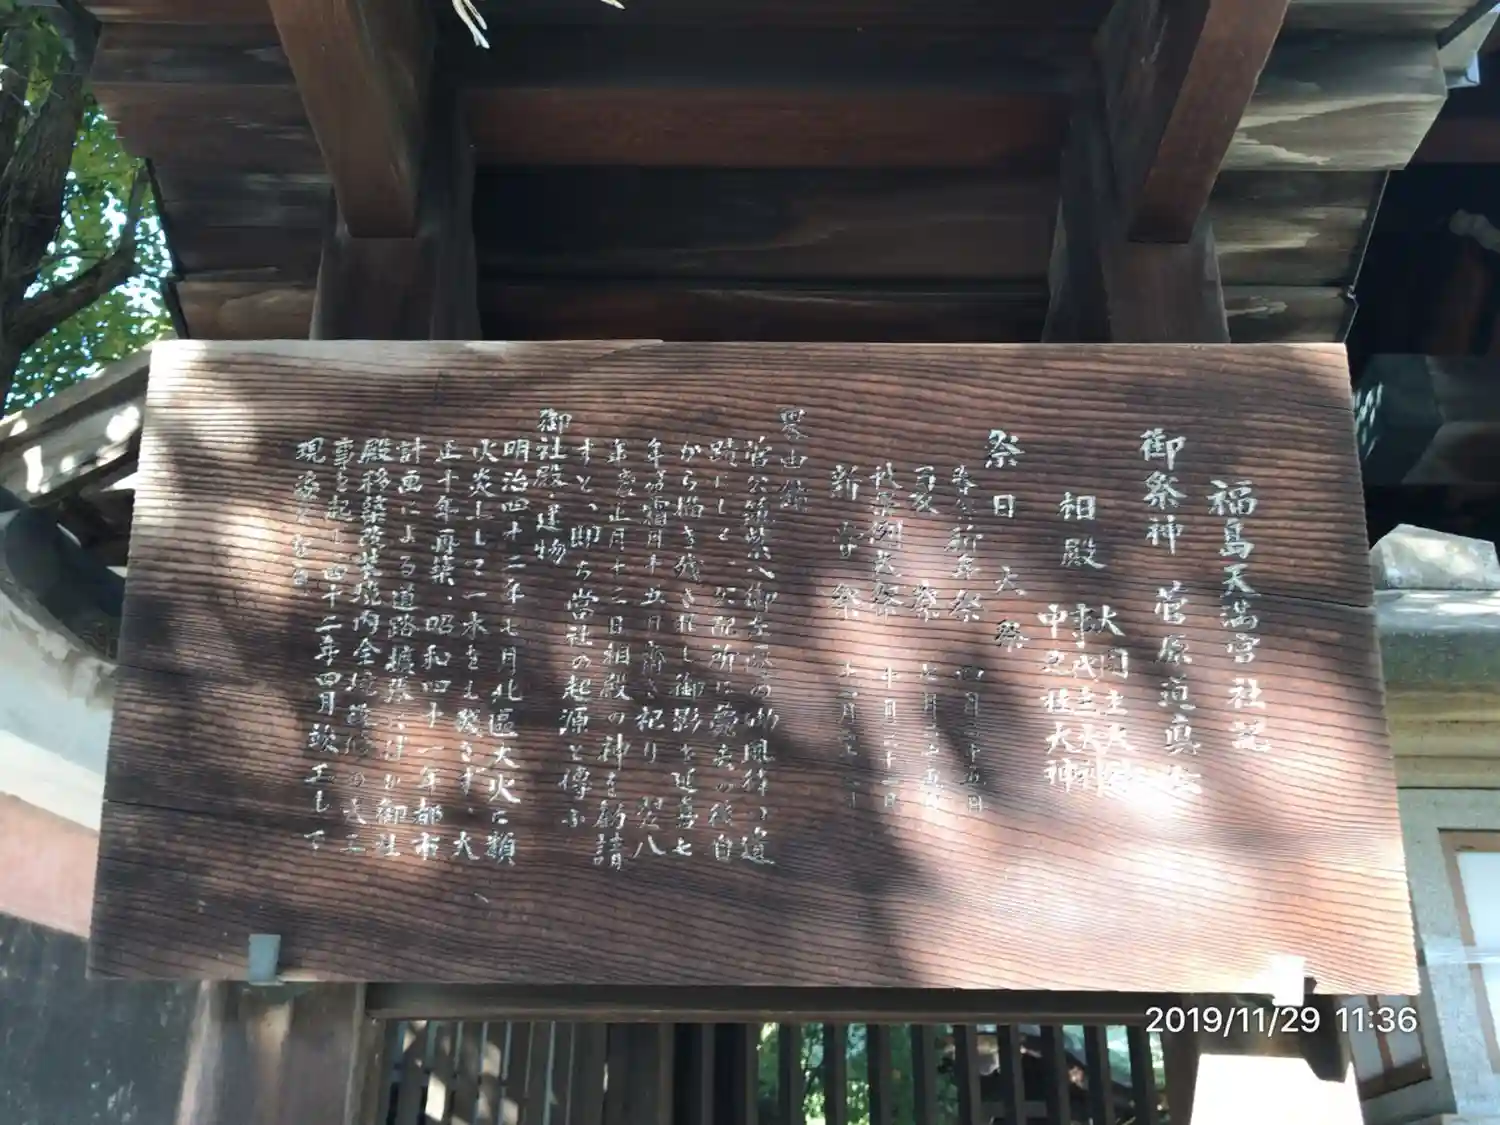 福島天満宮社記
御祭神 菅原道真公
相殿 大国主大神
事代主大神
中之社大神
祭日 大祭
春季祈年祭 四月二十五日
夏祭 七月二十五日
秋季例大祭 十月二十一日
新嘗祭 十一月
畧由緒
菅公筑紫へ御左遷の砌風待の遺
蹟にして、公配所に薨去の後自
から描き残され し御影を延喜七
年 霜月十五日齋き祀り、翌八
年歳正月十三日相殿の神を勧請
すと、即ち當社の起源と傳ふ
御社殿・建物
明治四十二年七月北區大火に類
火炎上して一木をも残さず、大
正十年再築、昭和四十一年都市
計画による道路擴張に伴ひ御社
殿移築改装境内全境 修の大工
事を起し四十二年四月竣工して
現